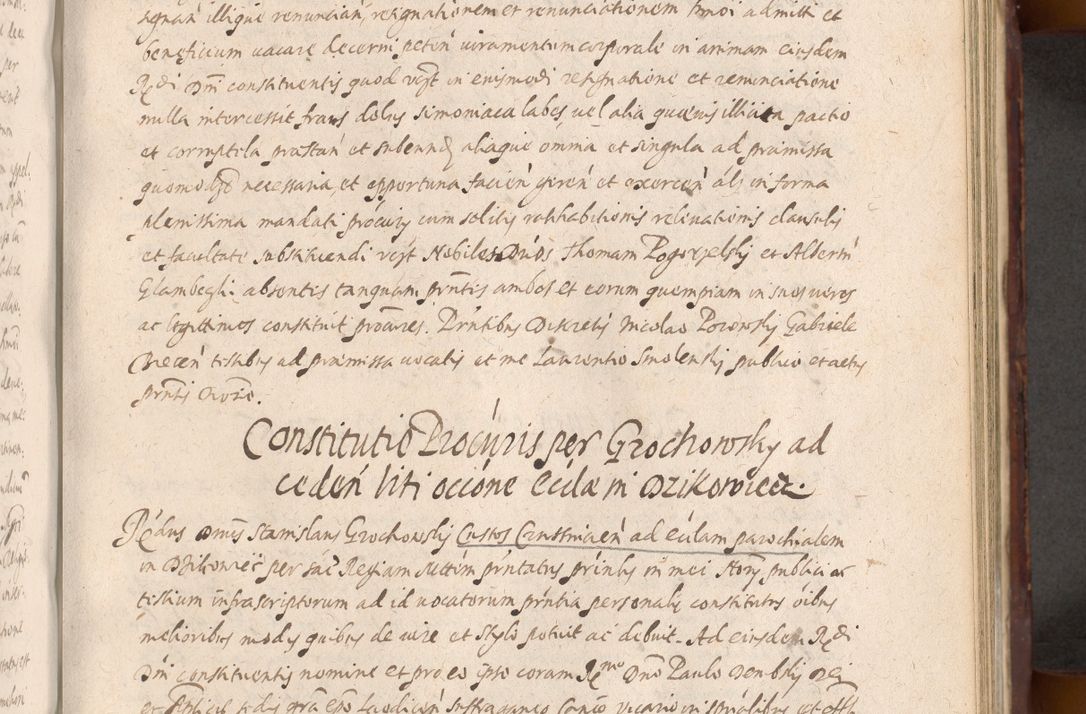 signań illique renuncian, resignationem et renunciationem hmoi admitti et
beneficium vacare decerni peten iuramentum corporale in animam eiusdem
Rdi Dni constituentis quod in eiusmodi resignatione et renunciatione
nulla intercessit fraus dolus simoniaca labes vel alia quaevis illicita pactio
et corruptela prestań et subeund aliaque omnia et singula ad praemissa
quomodo necessaria et opportuna facień gereń et exerceń als in forma
plenissima mandati procuris cum solitis ratihabitionis relevationis clausulis
et facultate substituendi Nobiles Dnos Thomam Pogorzelsky et Albertu
absentis tanquam pntis ambos et eorum quempiam in suos veros
ac legitimos constituit procures. Pntibus Discretis Nicolao Porowsky Gabriele
testibus ad praemissa vocatis et me Laurentio Smolensky publico et actus
pntis Notro.
Constitutio Procuris per Grochowsky ad
cedeń liti occione Ecclae in Dzikowiec.
Rdus Dnus Stanislaus Grochowsky Custos Crusviceń ad Ecclam parochialem
in Dzikowiec per Sac Regiam Mttem pntatus pntis in mei Nory publici ac
testium infrascriptorum ad id vocatorum pntia personalr constitutus oibus
melioribus modis quibus de iure et stylo potuit ac debuit. Ad eiusdem Rdi
Dni constituentis nomine et pro eo ipso coram Rmo Dno Paulo Dembsky Dei
et Aplicae sedis gra Epo Laodiceń Suffraganeo vicario in spiritualibus et offi